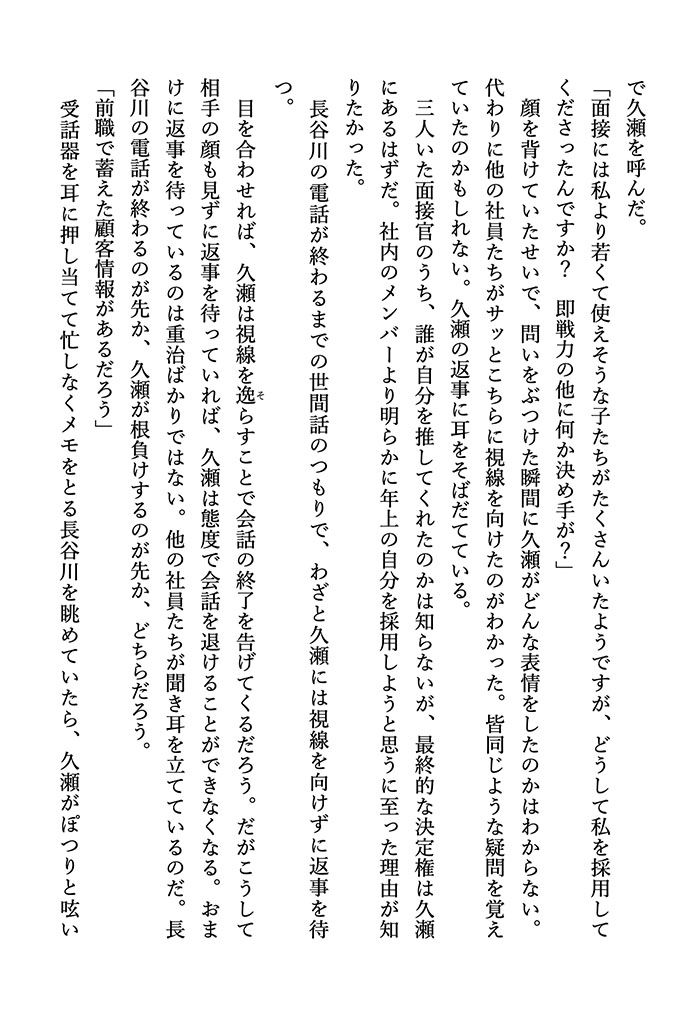 で久瀬を呼んだ。
「面接には私より若くて使えそうな子たちがたくさんいたようですが、どうして私を採用して
くださったんですか？　即戦力の他に何か決め手が？」
　顔を背けていたせいで、問いをぶつけた瞬間に久瀬がどんな表情をしたのかはわからない。
代わりに他の社員たちがサッとこちらに視線を向けたのがわかった。皆同じような疑問を覚え
ていたのかもしれない。久瀬の返事に耳をそばだてている。
　三人いた面接官のうち、誰が自分を推してくれたのかは知らないが、最終的な決定権は久瀬
にあるはずだ。社内のメンバーより明らかに年上の自分を採用しようと思うに至った理由が知
りたかった。
　長谷川の電話が終わるまでの世間話のつもりで、わざと久瀬には視線を向けずに返事を待
つ。
　目を合わせれば、久瀬は視線を逸らすことで会話の終了を告げてくるだろう。だがこうして
相手の顔も見ずに返事を待っていれば、久瀬は態度で会話を退けることができなくなる。おま
けに返事を待っているのは重治ばかりではない。他の社員たちが聞き耳を立てているのだ。長
谷川の電話が終わるのが先か、久瀬が根負けするのが先か、どちらだろう。
「前職で蓄えた顧客情報があるだろう」
　受話器を耳に押し当てて忙しなくメモをとる長谷川を眺めていたら、久瀬がぽつりと呟い
そ